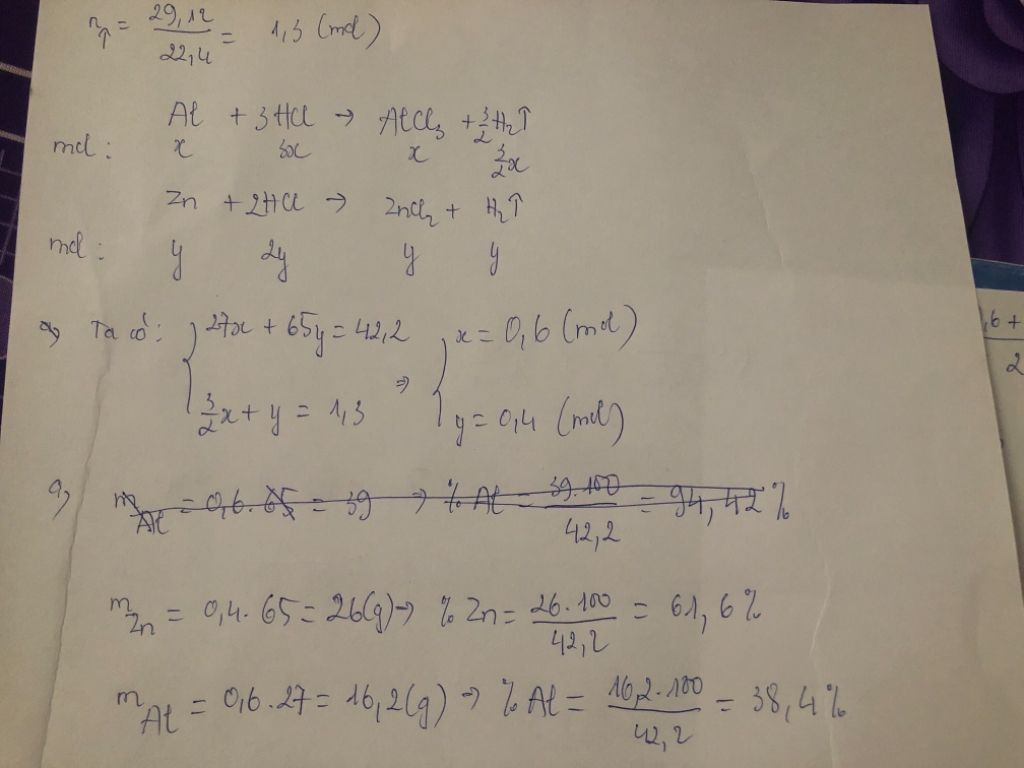 n↑ = 29,12 / 22,4 = 1,3 (mol)
Al + 3HCl → AlCl₃ + 3/2 H₂↑
mol: x 3x x 3/2x
Zn + 2HCl → ZnCl₂ + H₂↑
mol: y 2y y y
a, Ta có: { 27x + 65y = 42,2 ⇒ { x = 0,6 (mol)
3/2x + y = 1,3 y = 0,4 (mol)
a, m Al = 0,6 . 65 = 39 → % Al = 39.100 / 42,2 = 94,42 %
m Zn = 0,4 . 65 = 26(g) → % Zn = 26.100 / 42,2 = 61,6 %
m Al = 0,6 . 27 = 16,2(g) → % Al = 16,2.100 / 42,2 = 38,4 %
,6 +
2